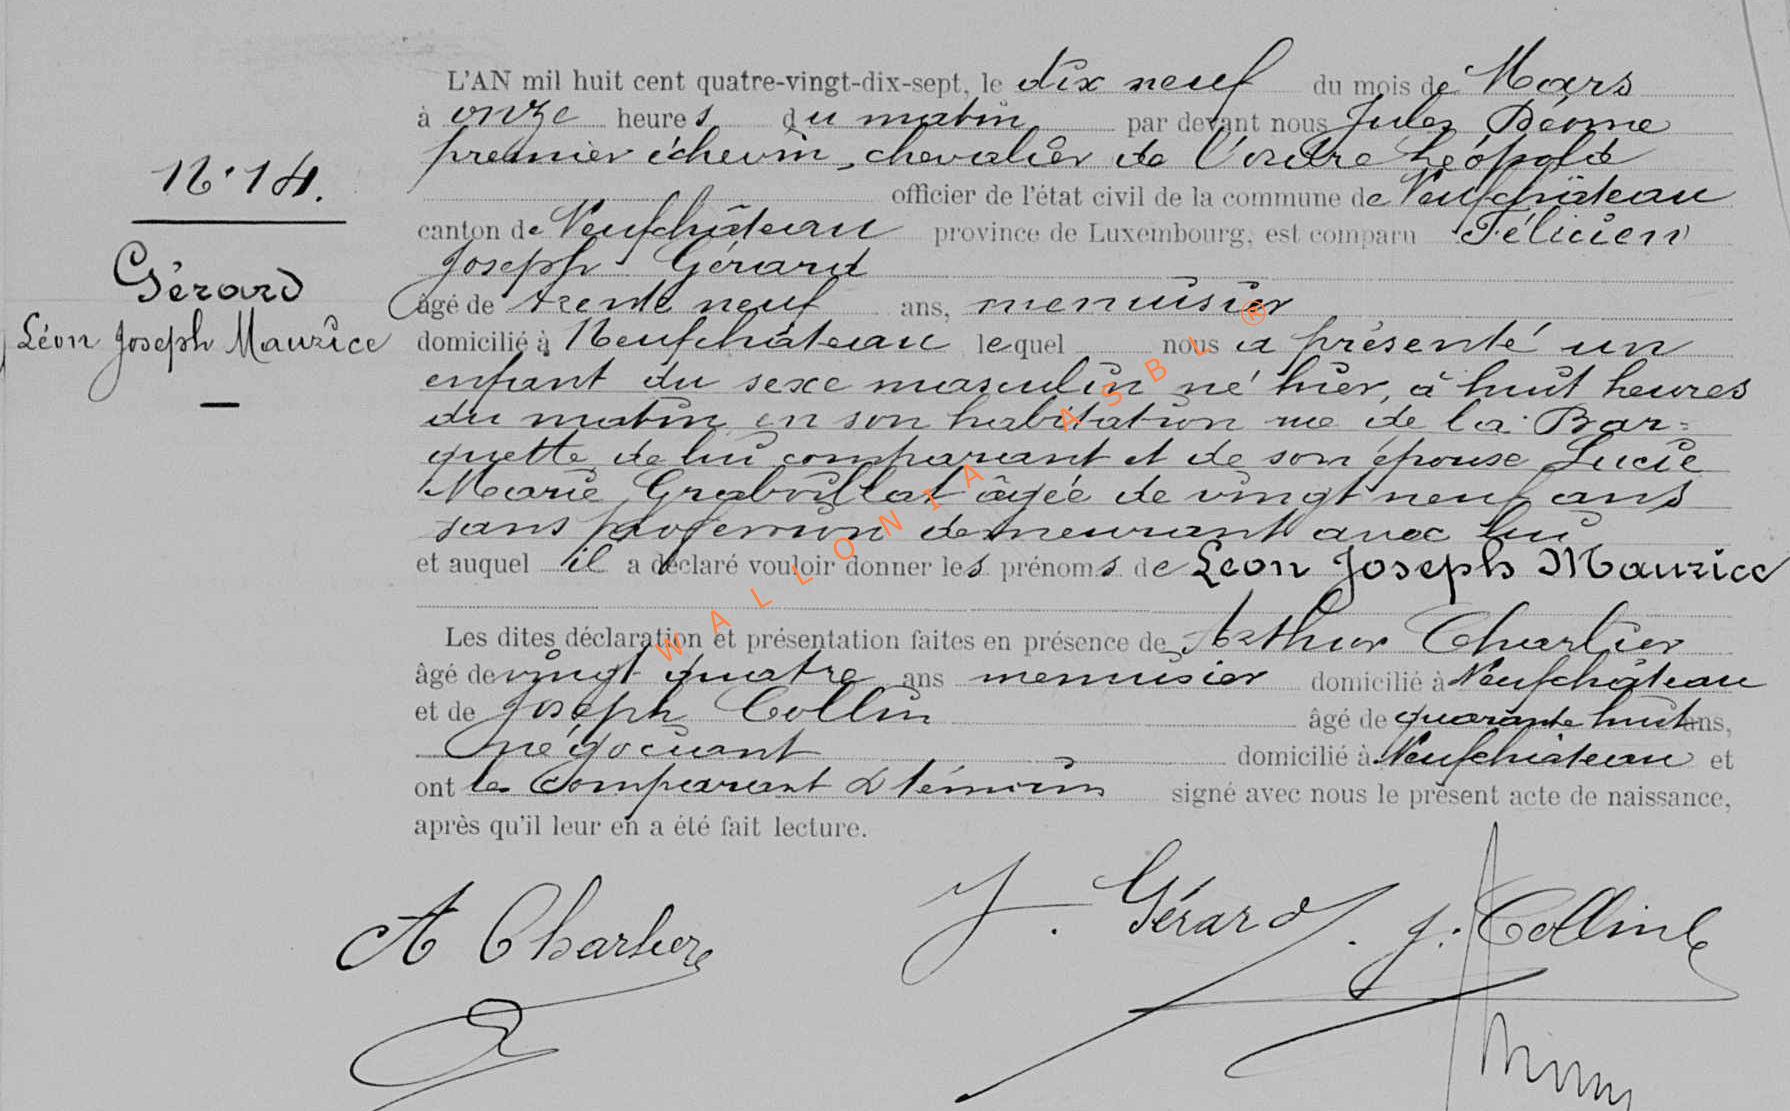 L'AN mil huit cent quatre-vingt-dix-sept, le dix neuf du mois de Mars
à onze heures du matin par devant nous Jules
premier échevin, chevalier de l'ordre Léopold
N° 14.
officier de l'état civil de la commune de Neufchâteau
canton de Neufchâteau province de Luxembourg, est comparu Félicien
Joseph Gérard
Gérard
Léon Joseph Maurice
âgé de trente neuf ans, menuisier
domicilié à Neufchâteau lequel nous a présenté un
enfant du sexe masculin né hier, à huit heures
du matin en son habitation rue de la Bar=
quette, de lui comparant et de son épouse Lucie
Marie âgée de vingt neuf ans
sans profession demeurant avec lui
et auquel il a déclaré vouloir donner les prénoms de Léon Joseph Maurice
Les dites déclaration et présentation faites en présence de Arthur Charlier
âgé de vingt quatre ans menuisier domicilié à Neufchâteau
et de Joseph Collin âgé de quarante huit ans,
négociant domicilié à Neufchâteau et
ont les comparant & témoins signé avec nous le présent acte de naissance,
après qu'il leur en a été fait lecture.
WALLONIA ASBL ®
A Charlier
J. Gérard. J. Collin